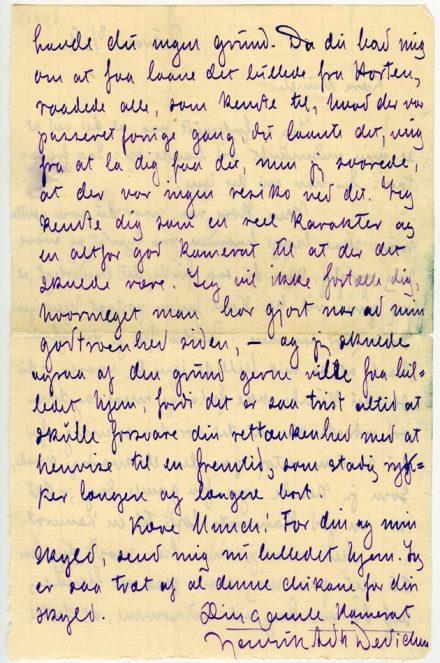 havde du ingen grund. Da du bad mig
om at faa laane det billede fra Horten,
raadede alle, som kendte til, hvad der var
passeret forrige gang, du laante det, mig
fra at la dig faa det, men jeg svarede,
at der var ingen resiko ved det. Jeg
kendte dig som en reel karakter og
en altfor god kamerat til at der det
skulde være. Jeg vil ikke fortælle dig,
hvormeget man har gjort nar ad min
godtroenhed siden, – og jeg skulde
ogsaa af den grund gerne ville faa bil-
ledet hjem, fordi det er saa trist altid at
skulle forsvare din rettænkenhed med at
henvise til en fremtid, som stadig ryk-
ker længer og længere bort.
Kære Munch! For din og min
skyld, send mig nu billedet hjem. Jeg
er saa træt af al denne chikane for din
skyld.
Din gamle Kamerat
Henrik Adh Dedichen